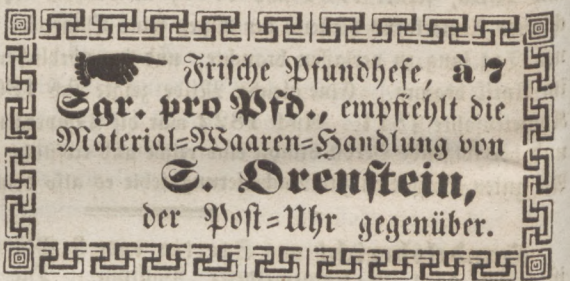 ☛ Frische Pfundhefe, a 7
Sgr. pro Pfd., empfiehlt die
Material=Waaren=Handlung von
S. Orenstein,
der Post=Uhr gegenüber.